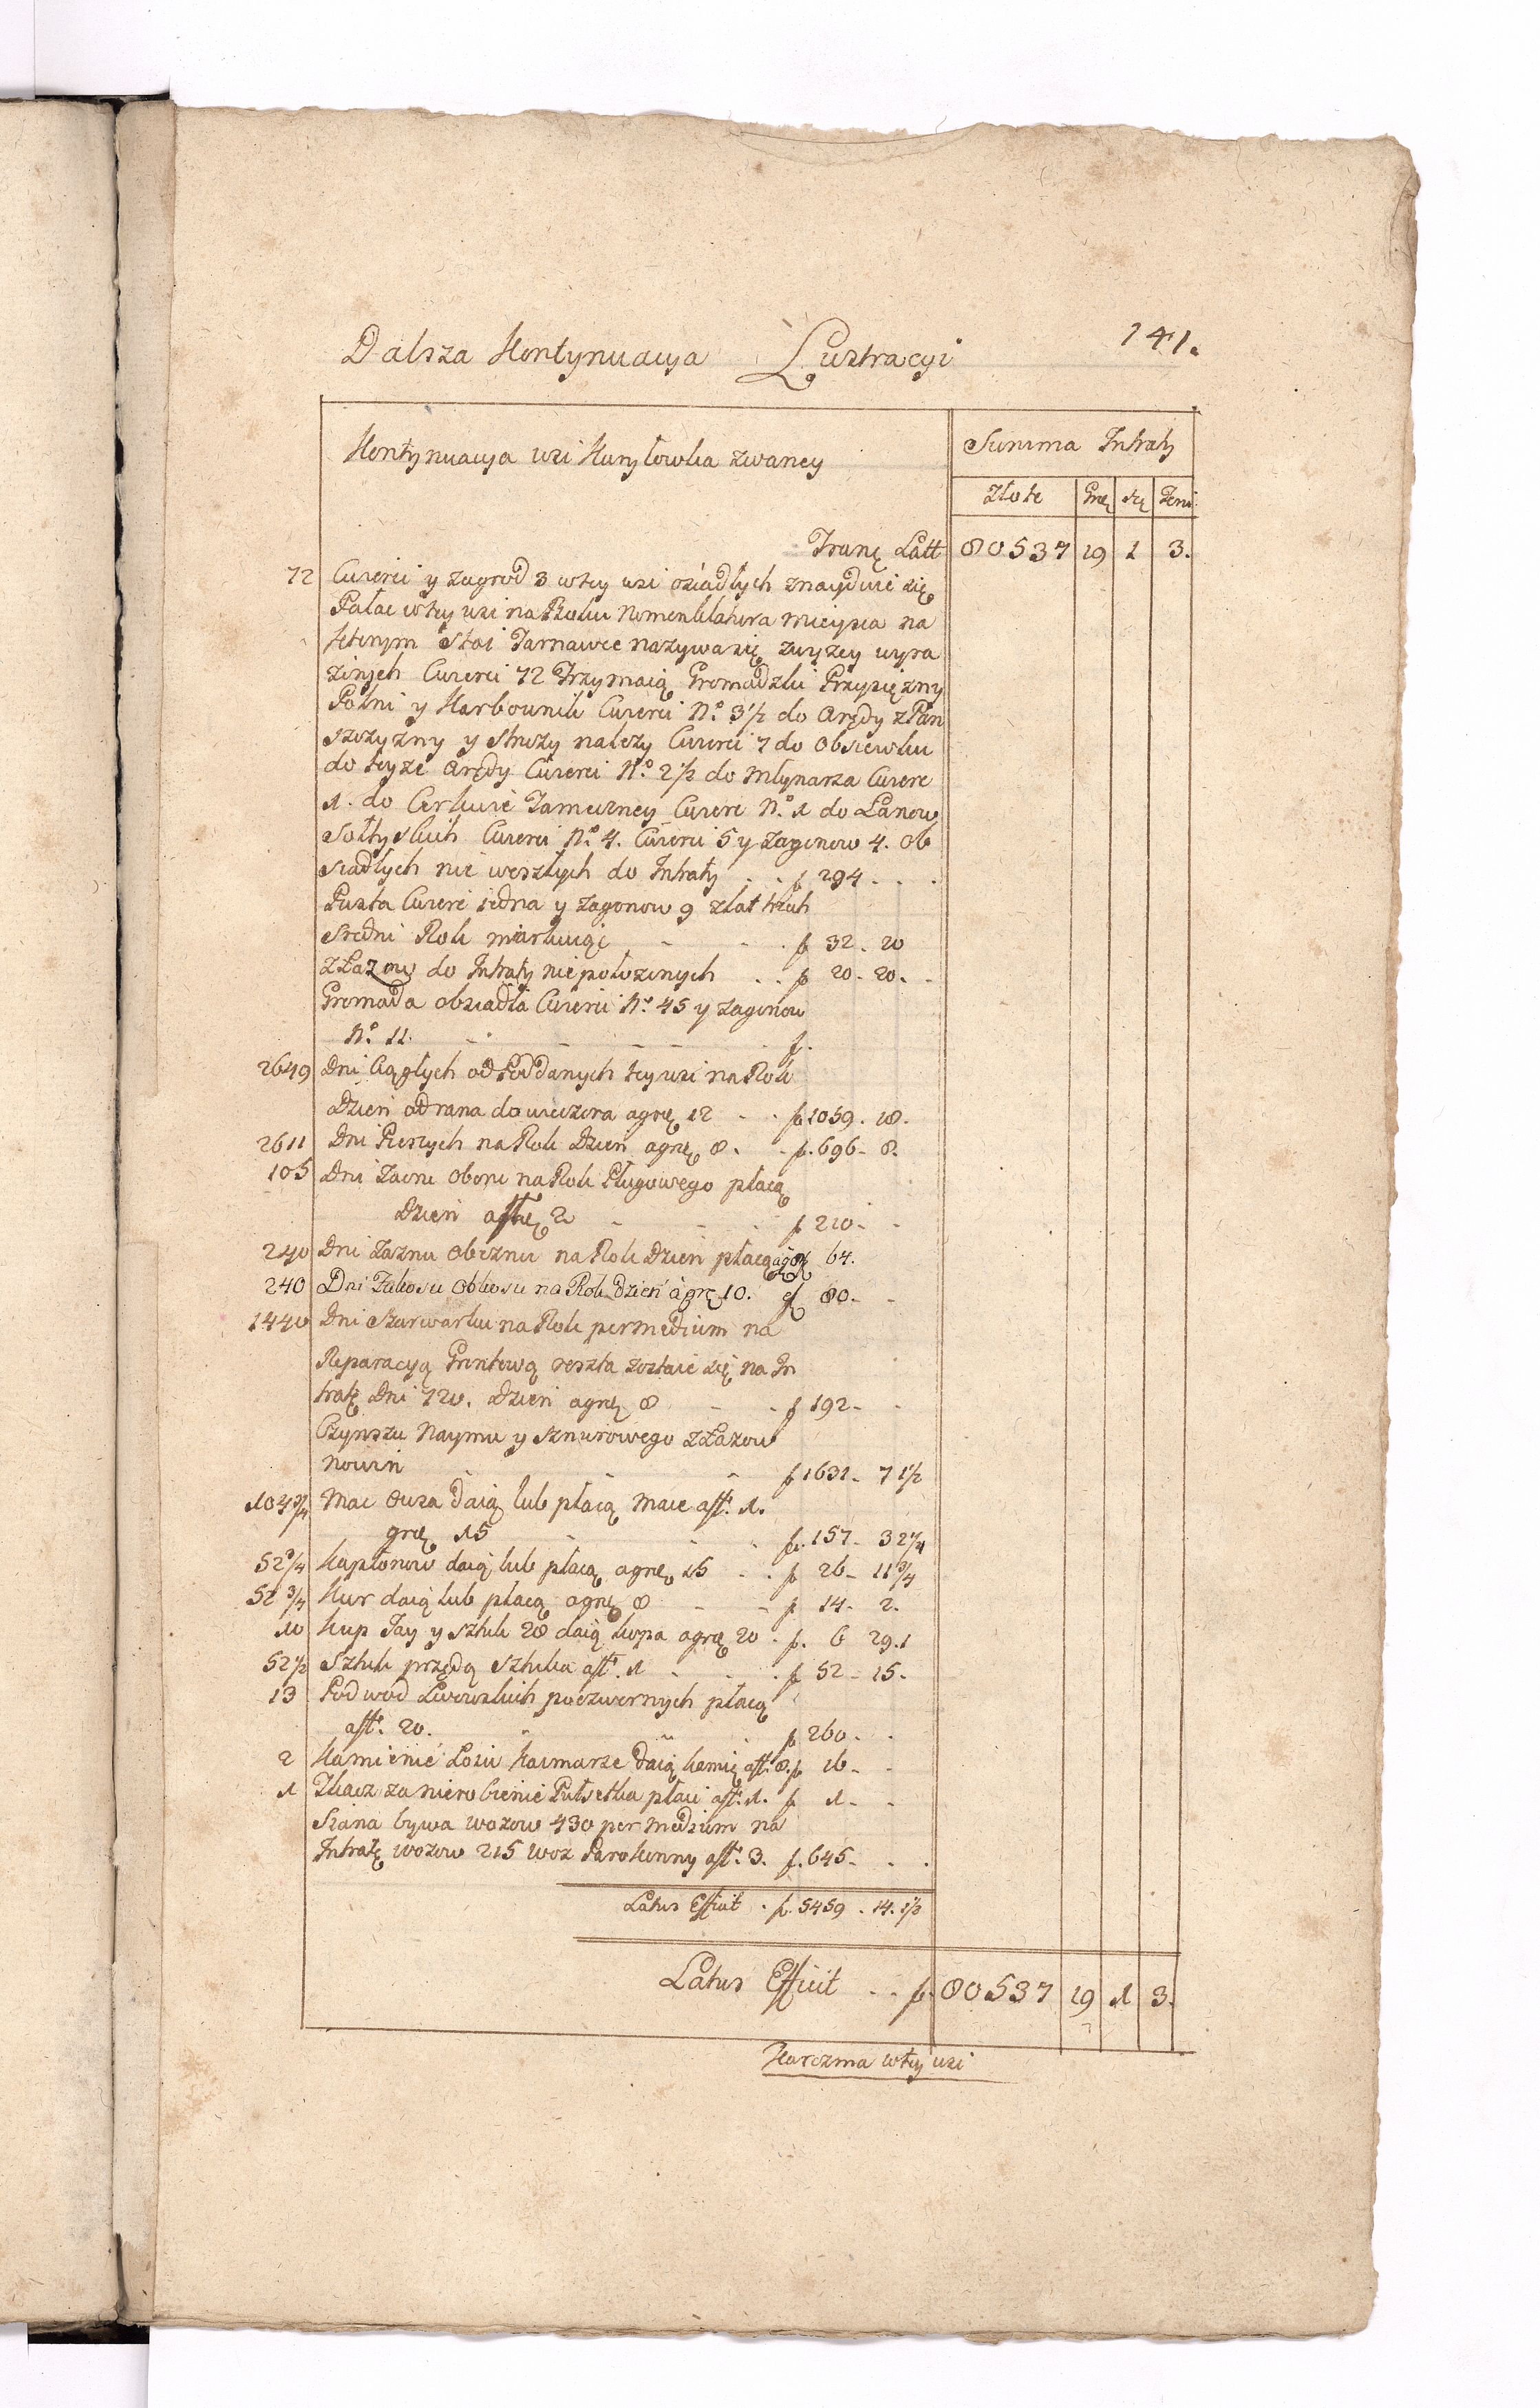 141.
Dalsza Kontynuacya Lustracyi
Kontynuacya wsi Kuryłowka zwaney
Summa Intraty
Złote Grę Sz Deni
Trans Latt 80537 19 1 3.
72 Cwierci y zagrod 3 wtey wsi osiadłych znayduie się
Pałac wtey wsi na Roku Nomenklatura mieysca na
ktorym stoi Tarnawiec nazywa się zwyzey wyra
zonych Cwierci 72 Trzymaią Gromadzki Przysięzny
Polni y Karbownik Cwierci No. 3 1/2 do Arędy z Pan
szczyzny y Strozy nalezy Cwierci 7 do Obsiewku
do teyze Arędy Cwierci No. 2 1/2 do Młynarza Cwierc
1. do Cerkwie Tameczney Cwierc No. 1 do Łanow
Sołtyskich Cwierci No. 4. Cwierci 5 y zagonow 4. ob
siadłych nie weszłych do Intraty . . f 294 . . .
Pusta Cwierc iedna y zagonow 9 z lat trzech
Sredni Rok miarkuiąc - - . f 32 . 20
z Łazow do Intraty nie położonych . . f 20 . 20 . -
Gromada obsiadła Cwierci No. 45 y zagonow
No. 11. - - - - f.
2649 Dni Ciągłych od Poddanych tey wsi na Rok
Dzień od rana do wieczora agrę 12 - . f 1059 . 18.
2611 Dni Pieszych na Rok Dzień agrę 8. - f. 696 - 8.
105 Dni Zaoru Oboru na Rok Pługowego płacą
Dzień afłrę 2 - - . f 210 - -
240 Dni Zaznu Obeznu na Rok Dzień płacą agr 8 f 64.
240 Dni Zakosu Obkosu na Rok Dzień agrę 10. f 80 - -
1440 Dni Szarwarku na Rok per medium na
Reparacyą Gruntową reszta zostaie się na In
tratę Dni 720. Dzień agrę 8 - . f 192 - -
Czynszu Naymu y sznurowego z Łazow
nowin - - - f 1631 - 7 1/2
104 3/4 Mac Owsa daią lub płacą Mace afł. 1.
grę 15 - - . f. 157 - 3 2/4
52 3/4 Kapłonow daią lub płacą agrę 15 . . f 26 - 11 3/4
52 3/4 Kur daią lub płacą agrę 8 - - f 14 - 2.
10 Kup Jay y sztuk 28 daią kopa agrę 20 . f. 6 29.1
52 1/2 Sztuk przędą Sztuka afł. 1 - . . f 52 - 15.
13 Podwod Lwowskich poczwornych płacą
afł. 20. - - . f 260 . .
2 Kamienie Łoiu Karmarze daią kamię afł. 8. f 16 - -
1 Tkacz za nierobienie Pułsetka płaci afł. 1. f 1 - -
Siana bywa wozow 430 per medium na
Intratę wozow 215 Woz Parokonny afł. 3. f. 645 - . .
Latus Efficit . f. 5459 . 14. 1/2
Latus Efficit . . f. 80537 19 1 3.
Karczma wtey wsi